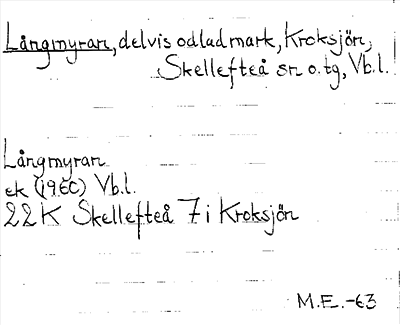 Långmyran, delvis odlad mark, Kroksjön,
Skellefteå sn o. tg, Vb.l.
Långmyran
ek (1960) Vb.l.
22K Skellefteå 7i Kroksjön
M.E.-63